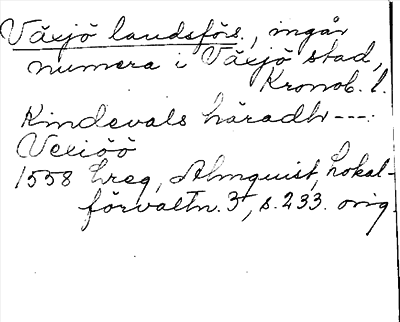 Växjö landsförs., ingår
numera i Växjö stad,
Kronob. l.
Kindevals häradh ---:
Vexiöö
1558 hreg, Almquist, Lokal-
förvaltn. 3, s. 233. orig.